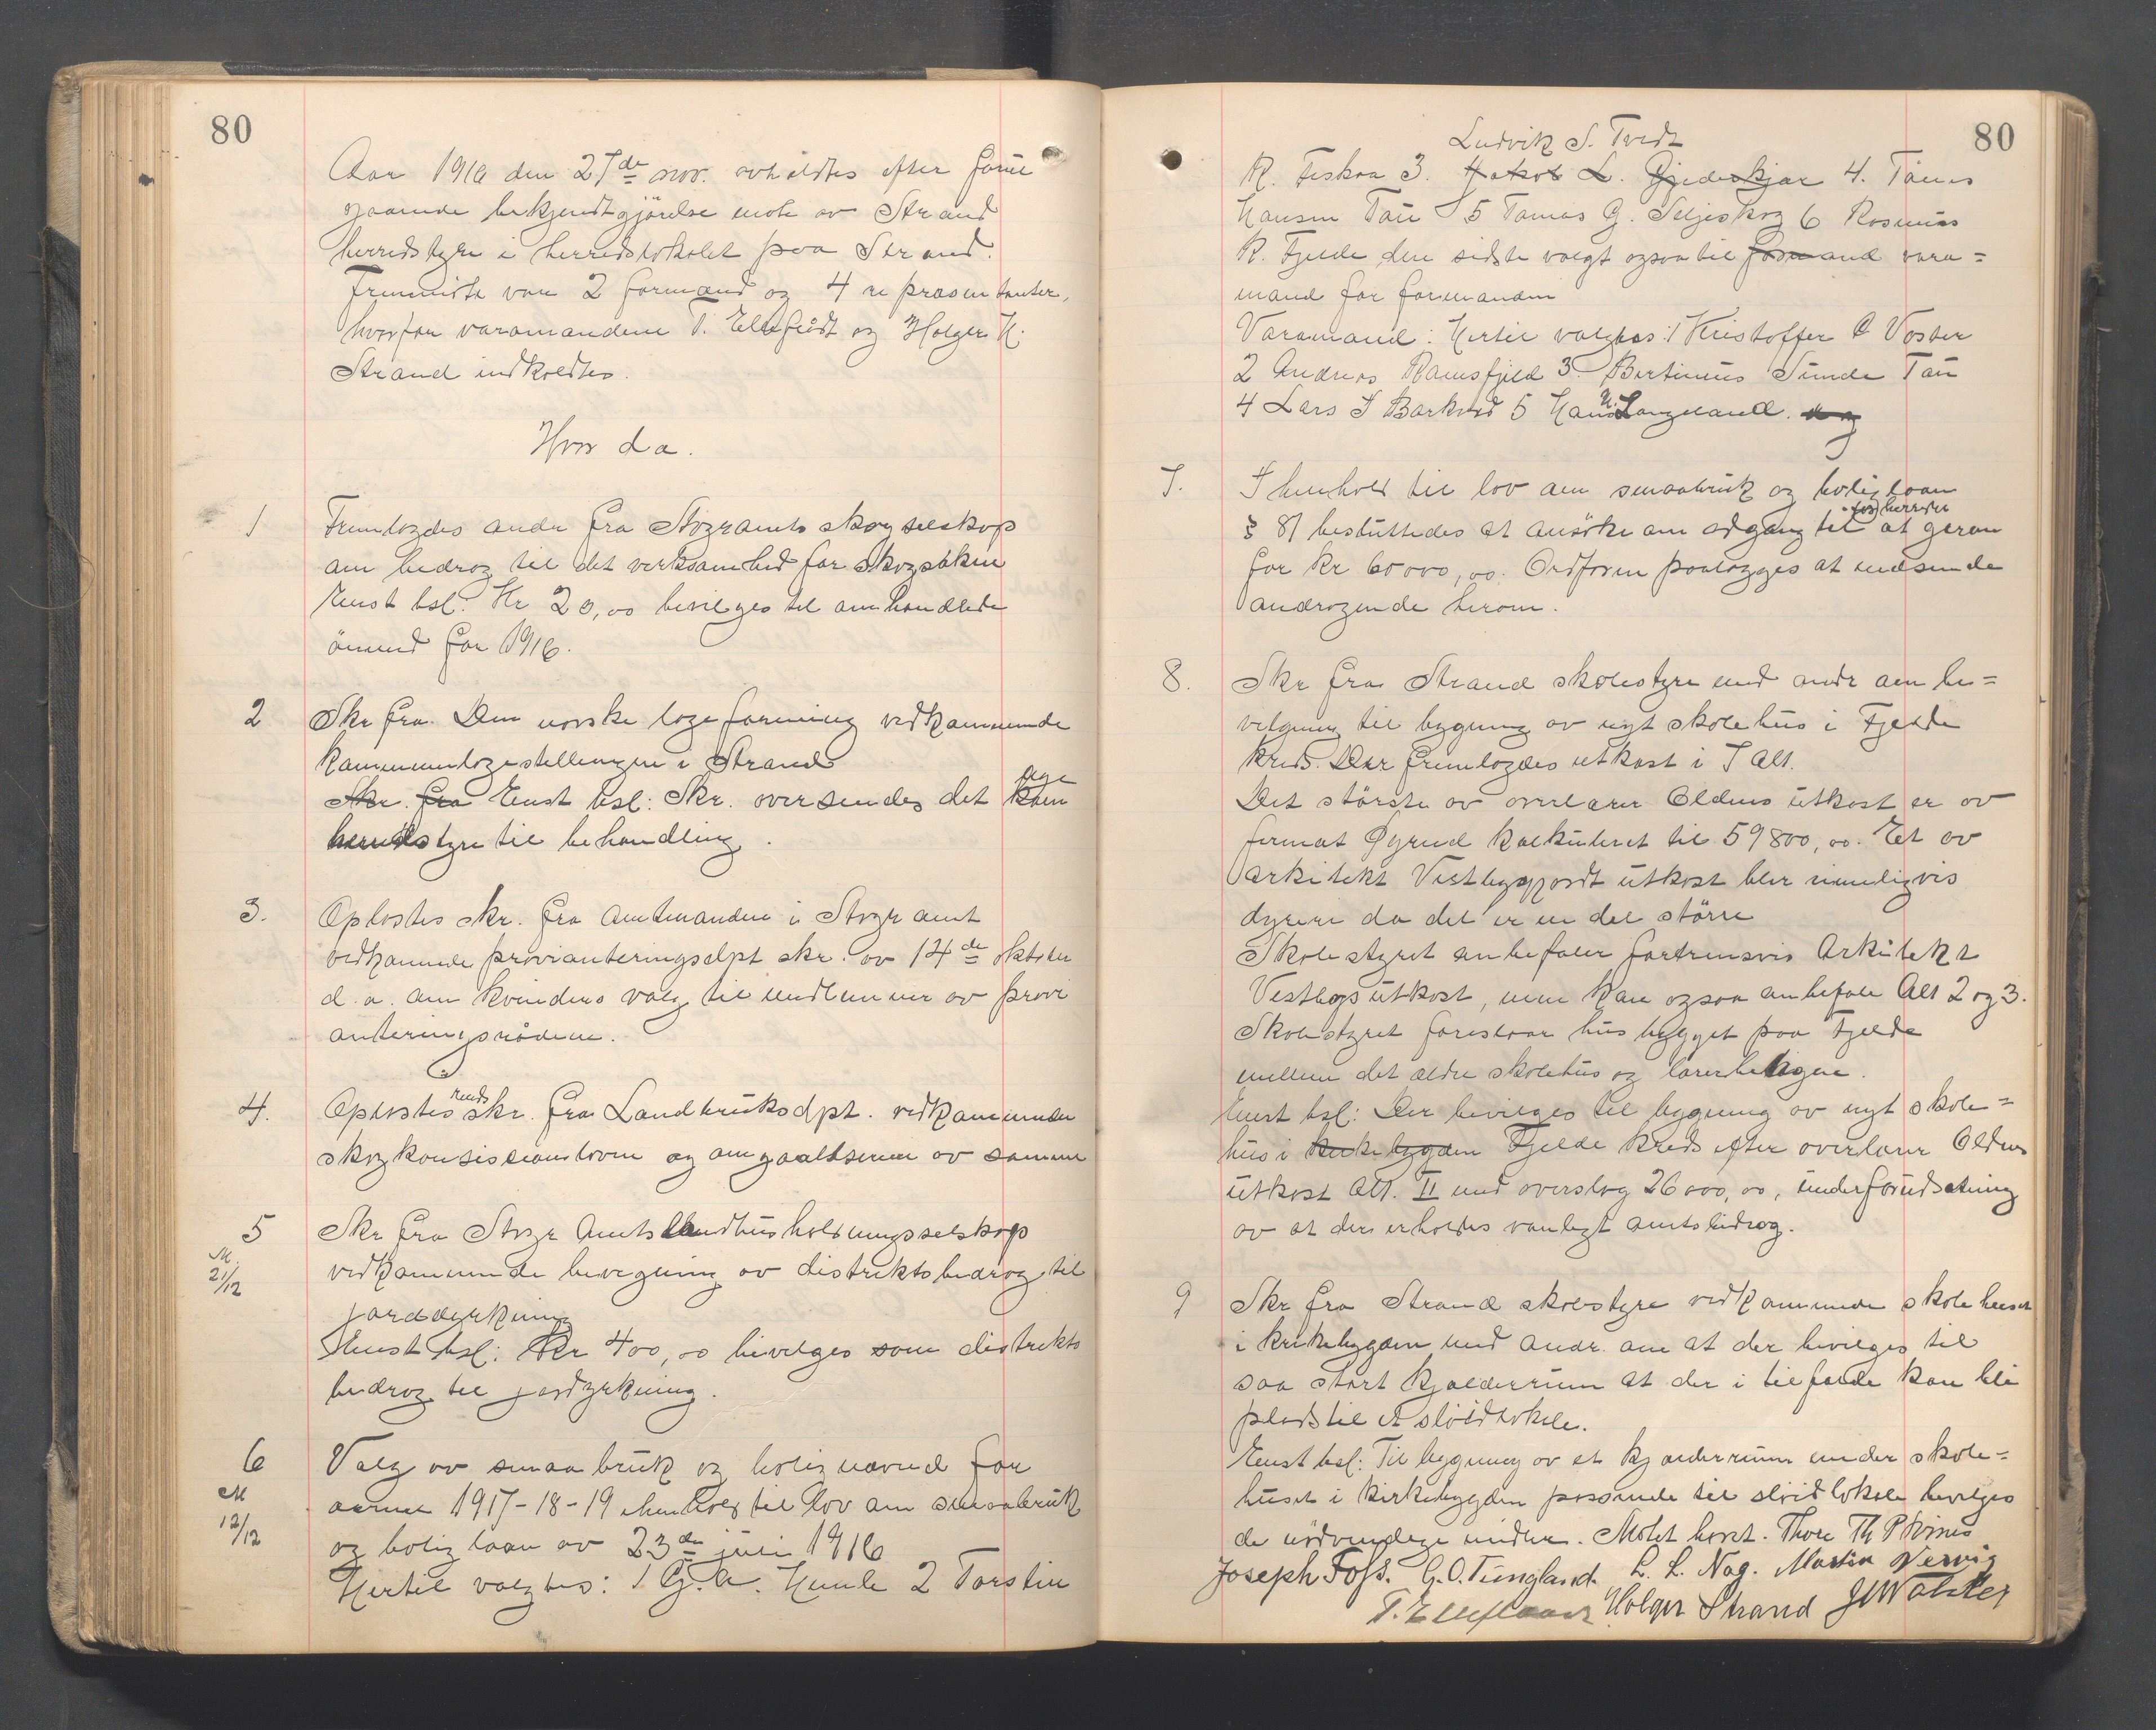 80
Aar 1916 den 27de nov. avholdtes efter forut
gaaende bekjendtgjörelse mote av Strand
herredstyre i herredslokalet paa Strand.
Fremmote var 2 formænd og 4 repræsentanter,
hvorfor varamændene T. og Holger H.
Strand indkaldtes.
Hvor da.
1 Fremlagdes andr fra Stvgr amts skogselskap
om bedrag til det verksamhed for skogsaken
Enst bsl: Kr 20,00 bevilges til omhandlede
öiemed for 1916.
2 Skr fra Den norske lægeforening vedkommende
kommunelægestillingen i Strand
Skr. fra Enst bsl: Skr. oversendes det nye kom
herredstyre til behandling.
3. Oplæstes skr. fra amtmanden i Stvgr amt
vedkommende provianteringsdpt skr. av 14de oktober
d. a. om kvinders valg til medlemmer av provi
anteringsrådene.
4. Oplæstes runds skr. fra Landbruksdpt. vedkommende
skogkonsesionsloven og omgaaelsene av samme
5 Skr fra Stvgr Amts landhusholdningsselskap
M. 21/12 vedkommende bevegning av distriktsbedrag til
jorddyrkning
Enst bsl: Kr 400,00 bevilges som distrikts
bedrag til jorddyrkning.
6 Valg av smaabruk og bolignævnd for
M 12/12 aarene 1917-18-19 ihenhold til lov om smaabruk
og boliglaan av 23de juni 1916
Hertil valgtes: 1 G. A. Humle 2 Torstein
80
Ludvik S. Tvedt
R. Fiskaa 3. Jakob L. Gjedeskjær 4. Tönes
Hansen Tau 5 Tomas G. Seljeskog 6 Rasmus
R. Fjelde den sidste valgt ogsaa til formand vara=
mand for formanden
Varamænd: Hertil valgtes: 1 Kristoffer O Voster
2 Andreas Ramsfjeld 3. Bertinius Sunde Tau
4 Lars I Barkved 5 Hans N. Langeland. og
7. I henhold til lov om smaabruk og boliglaan
§ 81 besluttedes at ansöke om adgang til for herredet at garan
for kr 60000,00. Ordføren paalægges at indsende
andragende herom.
8. Skr fra Strand skolestyre med andr om be=
vilgning til bygning av nyt skolehus i Fjelde
kreds. Der fremlagdes utkast i 7 alt.
Det störste av overlærer Oldens utkast er av
format Øyrud kalkuleret til 59800,00. Et av
arkitekt Vestbygjordt utkast blir rimeligvis
dyrere da det er en del större
Skolestyret anbefaler fortrinsvis Arkitekt
Vestbys utkast, men kan ogsaa anbefale Alt 2 og 3.
Skolestyret foreslaar hus bygget paa Fjelde
mellem det ældre skolehus og lærerboligen.
Enst bsl: Der bevilges til bygning av nyt skole=
hus i kirkebygden Fjelde kreds efter overlærer Oldens
utkast Alt. II med overslag 26000,00, underforudsætning
av at der erholdes vanligt amtsbidrag.
9 Skr fra Strand skolestyre vedkommende skolehuset
i kirkebygden med andr. om at der bevilges til
saa stort kjælderrum at der i tilfælde kan bli
plads til et slöidlokale.
Enst bsl: Til bygning av et kjælderrum under skole=
huset i kirkebygden passende til slöidlokale bevilges
de nödvendige midler. Mötet hævet. Thore Th
Joseph Foss. G. O. Tungland. L. L. Nag. Martin Nervig
T. Holger Strand